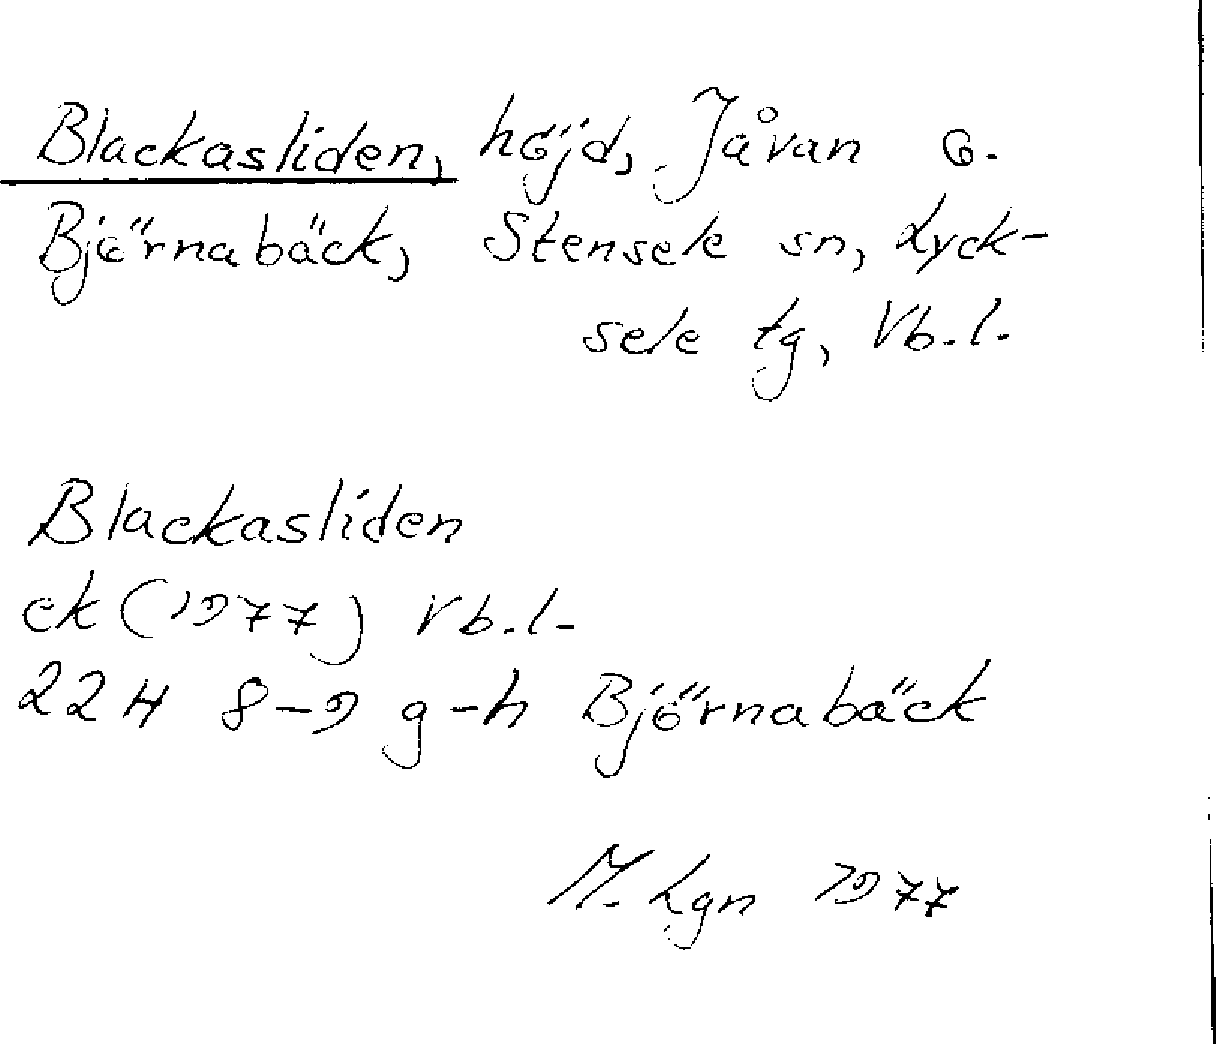 Blackasliden, höjd, Jåvan o.
Björnabäck, Stensele sn, Lyck-
sele tg, Vb.l.
Blackasliden
ek (1977) Vb.l.
22H 8-9 g-h Björnabäck
M. Lgn 1977